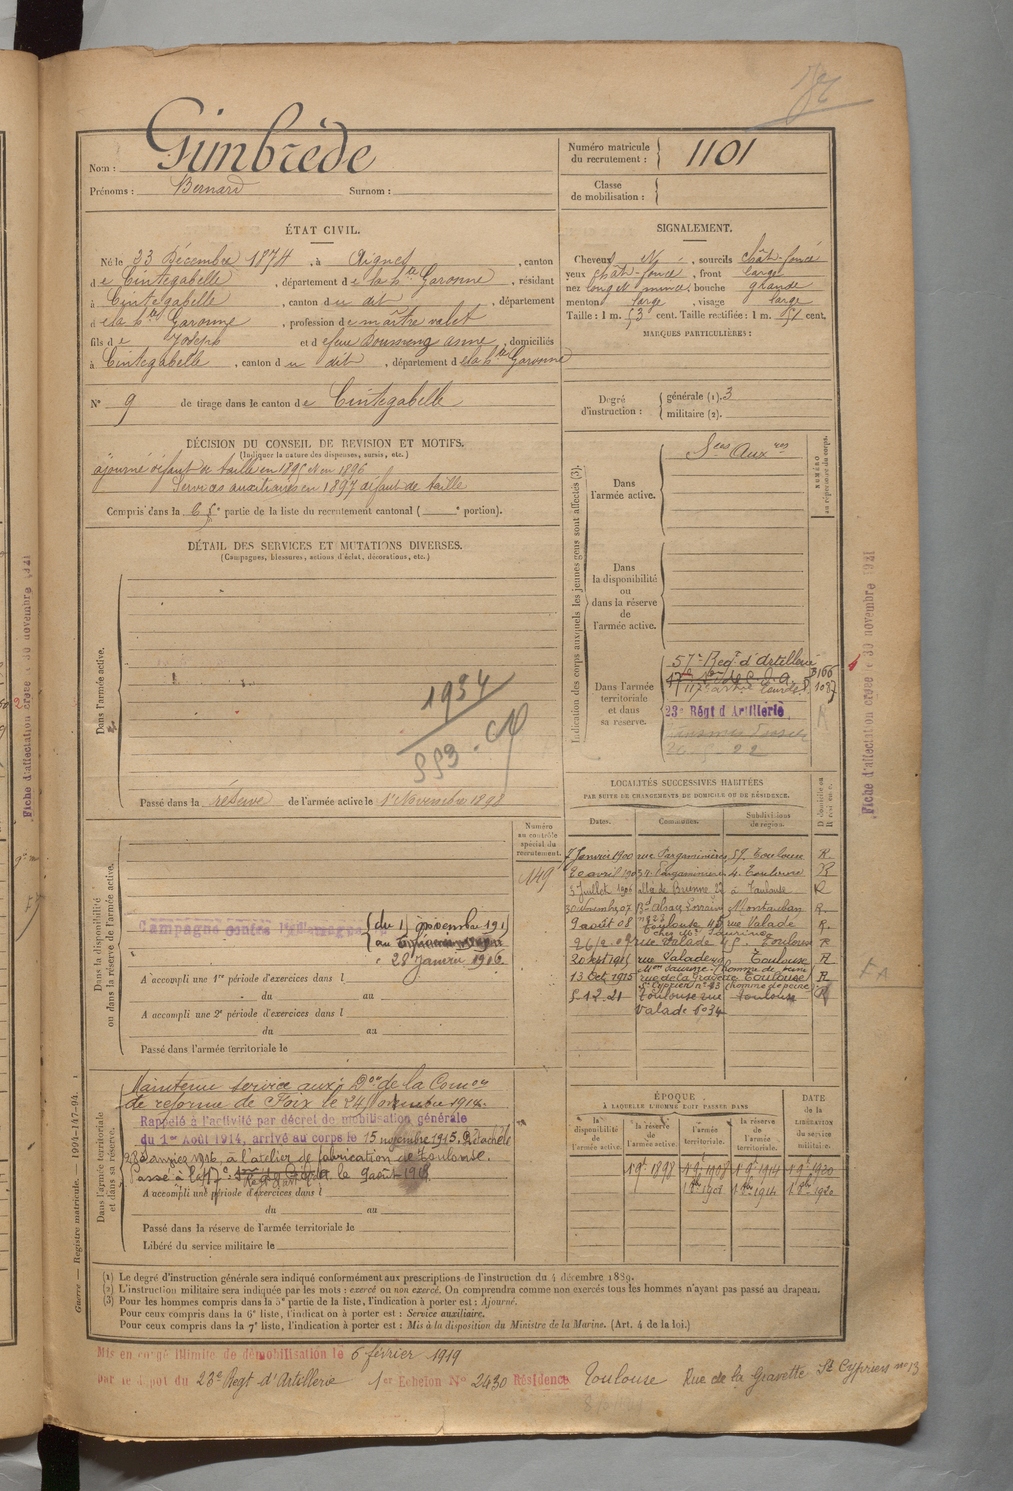 Nom : Gimbrède
Prénoms : Bernard Surnom :
Numéro matricule du recrutement : 1101
Classe de mobilisation :
ÉTAT CIVIL.
Né le 23 Décembre 1874, à Aignes, canton
de Cintegabelle, département de la hte Garonne, résidant
à Cintegabelle, canton du dit, département
de la hte Garonne, profession de maître valet
fils de Joseph et de feue Anne, domiciliés
à Cintegabelle, canton du dit, département de la hte Garonne
N° 9 de tirage dans le canton de Cintegabelle
SIGNALEMENT.
Cheveux N, sourcils chât-foncé
yeux chât-foncé, front large
nez long et mince, bouche grande
menton large, visage large
Taille : 1 m. 53 cent. Taille rectifiée : 1 m. 51 cent.
MARQUES PARTICULIÈRES :
Degré d'instruction : générale (1). 3
militaire (2).
DÉCISION DU CONSEIL DE REVISION ET MOTIFS.
(Indiquer la nature des dispenses, sursis, etc.)
ajourné défaut de taille en 1895 et en 1896
Services auxiliaires en 1897 défaut de taille
Compris dans la 6e partie de la liste du recrutement cantonal ( e portion).
DÉTAIL DES SERVICES ET MUTATIONS DIVERSES.
(Campagnes, blessures, actions d'éclat, décorations, etc.)
Dans l'armée active.
1934
993
Passé dans la réserve de l'armée active le 1er Novembre 1898
Indication des corps auxquels les jeunes gens sont affectés (3).
NUMÉRO au répertoire du corps.
Dans l'armée active.
Sces Auxres
Dans la disponibilité ou dans la réserve de l'armée active.
Dans l'armée territoriale et dans sa réserve.
57e Regt d'Artillerie
3166
1037
23e Régt d'Artillerie
Fiche d'affectation créée le 30 novembre 1921
Fiche d'affectation créée le 30 novembre 1921
LOCALITÉS SUCCESSIVES HABITÉES
PAR SUITE DE CHANGEMENTS DE DOMICILE OU DE RÉSIDENCE.
Dates. Communes. Subdivisions de région. D domicile ou R résidence.
7 Janvier 1900 rue Pargaminières 59 Toulouse R.
20 avril 1903 Toulouse R
5 Juillet 1906 allée de Brienne 27 à Toulouse R
30 Novembre 07 Bd Alsace Lorraine Montauban R.
9 août 08 Toulouse rue Valade R.
26/2/09 rue Valade 45 Toulouse R
20 sept 1915 rue Valade Toulouse R
13 Oct. 1915 rue de la Gravette Toulouse R
St Cyprien n° 13 (homme de peine)
5-12-21 Toulouse rue Toulouse R
Valade n° 34
Numéro au contrôle spécial du recrutement.
149
Dans la disponibilité ou dans la réserve de l'armée active.
Campagne contre l'Allemagne du 15 novembre 1915
au
28 Janvier 1916.
A accompli une 1re période d'exercices dans l
du au
A accompli une 2e période d'exercices dans l
du au
Passé dans l'armée territoriale le
Dans l'armée territoriale et dans sa réserve.
Maintenu service auxre Don de la Comon
de réforme de Foix le 24 Novembre 1914.
Rappelé à l'activité par décret de mobilisation générale
du 1er Août 1914, arrivé au corps le 15 novembre 1915. Détaché le
28 Janvier 1916 à l'atelier de fabrication de Toulouse.
Passé à le 9 août 1918
A accompli une période d'exercices dans l
du au
Passé dans la réserve de l'armée territoriale le
Libéré du service militaire le
ÉPOQUE
À LAQUELLE L'HOMME DOIT PASSER DANS
la disponibilité de l'armée active. la réserve de l'armée active. l'armée territoriale. la réserve de l'armée territoriale.
DATE de la LIBÉRATION du service militaire.
1 9e 1898 1 9e 1908 1 9e 1914 1 9e 1920
(1) Le degré d'instruction générale sera indiqué conformément aux prescriptions de l'instruction du 4 décembre 1889.
(2) L'instruction militaire sera indiquée par les mots : exercé ou non exercé. On comprendra comme non exercés tous les hommes n'ayant pas passé au drapeau.
(3) Pour les hommes compris dans la 5e partie de la liste, l'indication à porter est : Ajourné.
Pour ceux compris dans la 6e liste, l'indication à porter est : Service auxiliaire.
Pour ceux compris dans la 7e liste, l'indication à porter est : Mis à la disposition du Ministre de la Marine. (Art. 4 de la loi.)
Guerre. — Registre matricule. — 1994-147-94.
Mis en congé illimité de démobilisation le 6 février 1919
par le dépôt du 23e Regt d'Artillerie 1er Echelon No 2430 Résidence Toulouse Rue de la Gravette St Cyprien no 13